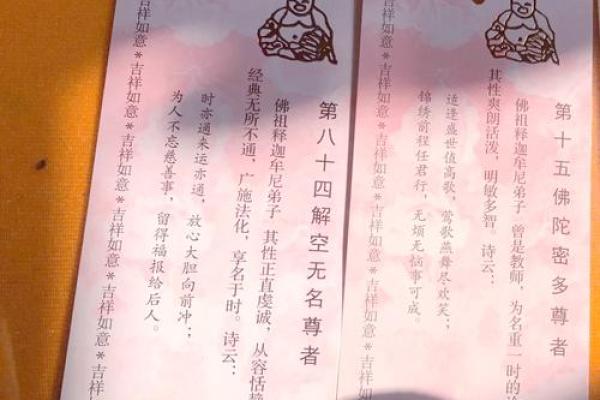 第十五佛陀密多尊者
佛祖释迦牟尼弟子 曾是教师，为名重一时的
其性爽朗活泼，明敏多智。诗云：
适逢盛世值高歌，莺歌燕舞尽欢笑；
锦绣前程任君行，无烦无恼事可成。
吉祥如意*吉祥如意*吉祥如意*吉祥如意*吉祥如意*吉祥
第八十四解空无名尊者
佛祖释迦牟尼弟子 其性正直虔诚，从容恬静
经典无所不通，广施法化，享名于时。诗云：
时亦通来运亦通，放心大胆向前冲；
为人不忘慈善事，留得福报给后人。
吉祥如意*吉祥如意*吉祥如意*吉祥如意*吉祥如意*吉祥如